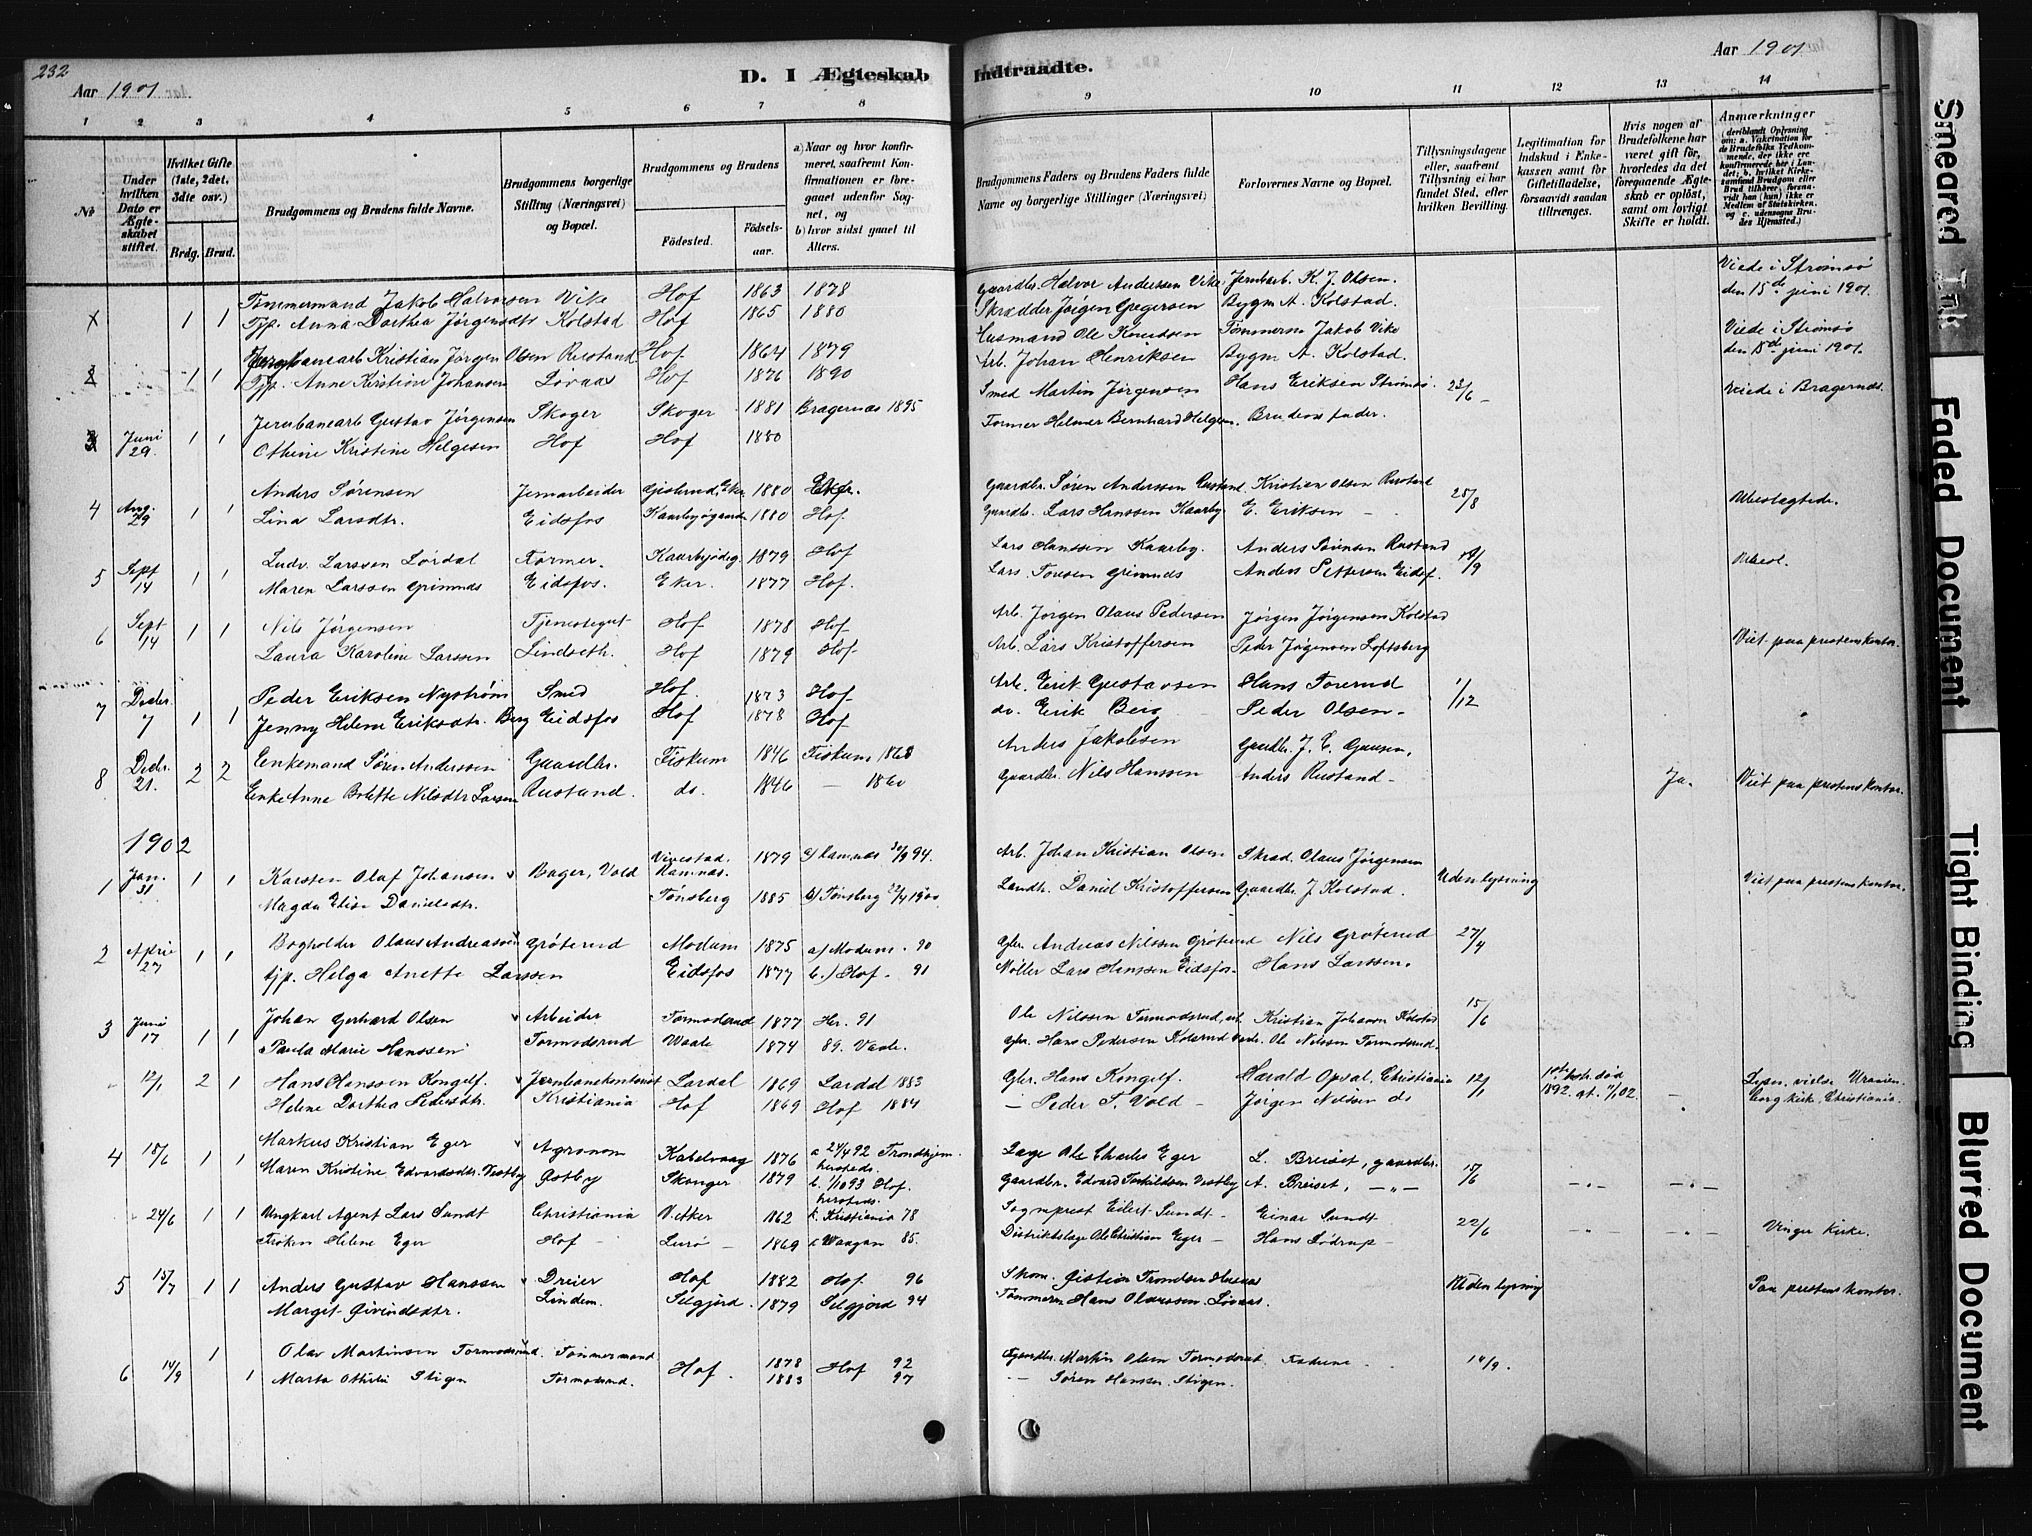 232
Aar 1901
D. I Ægteskab Indtraadte.
Aar 1901
1 2 3 4 5 6 7 8 9 10 11 12 13 14
No
Under hvilken Dato er Ægteskabet stiftet.
Hvilket Gifte (1ste, 2det, 3die osv.)
Brdg. Brud.
Brudgommens og Brudens fulde Navne.
Brudgommens borgerlige Stilling (Næringsvei) og Bopæl.
Brudgommens og Brudens
Fødested. Fødselsaar.
a) Naar og hvor konfirmeret, saafremt Konfirmationen er foregaaet udenfor Sognet, og
b) hvor sidst gaaet til Alters.
Brudgommens Faders og Brudens Faders fulde Navne og borgerlige Stillinger (Næringsvei)
Forlovernes Navne og Bopæl.
Tillysningsdagene eller, saafremt Tillysning ei har fundet Sted, efter hvilken Bevilling.
Legitimation for Indskud i Enkekassen samt for Giftetilladelse, forsaavidt saadan tiltrænges.
Hvis nogen af Brudefolkene har været gift før, hvorledes da det foregaaende Ægteskab er opløst, samt om lovligt Skifte er holdt.
Anmærkninger (deriblandt Oplysning om: a. Vakcination for de Brudefolks Vedkommende, der ikke ere konfirmerede her i Landet; b. hvilket Kirkesamfund Brudgom eller Brud tilhører, forsaavidt han (hun) ikke er Medlem af Statskirken, og c. udensogns Brudes Hjemsted.)
Tømmermand Jakob Halvorsen Vike Hof 1863 1878 Gaardbr. Halvor Anderssen Vike Jernbarb. K. J. Olsen. Viede i Strømsø den 15de juni 1901.
1 1 Tjp. Anna Dorthea Jørgensdtr Kolstad Hof 1865 1880 Skrædder Jørgen Gregersen Bygm A. Kolstad.
Jernbanearb Kristian Jørgen Olsen Rustand Hof 1864 1879 Husmand Ole Knudssen Tømmerm Jakob Vike Viede i Strømsø den 15de juni 1901.
1 1 Tjp. Anne Kristine Johansen Løvaas Hof 1876 1890 Arb. Johan Henriksen Bygm A. Kolstad.
Jernbanearb Gustav Jørgensen Skoger Skoger 1881 Bragernæs 1895 Smed Martin Jørgensen Hans Eriksen Strømsø. 23/6 Viede i Bragernæs.
3 Juni 29. 1 1 Othine Kristine Helgesen Hof Hof 1880 Former Helmer Bernhard Helgesen. Brudens fader.
Anders Sørensen Jernarbeider Gisterud, Eker 1880 Eker. Gaardbr. Søren Anderssen Rustand. Kristian Olsen Rustand
4 Aug. 29 1 1 Lina Larsdtr. Eidsfos Kaarbyøgaard 1880 Hof. Gaardbr. Lars Hanssen Kaarby E. Eriksen 25/8 Ubeslægtede.
Ludv. Larssen Lørdal Former. Kaarbyødeg 1879 Hof Lars Hanssen Kaarby. Anders Sørensen Rustand
5 Sept 14 1 1 Maren Larssen Grimnds Eidsfos. Eker. 1877 Hof. Lars Toresen Grimnds Anders Pettersen Eidsf. /9 Ubesl.
Nils Jørgensen Tjenestegut Hof 1878 Hof Arb. Jørgen Olaus Pedersen Jørgen Jørgensen Kolstad
6 Sept 14 1 1 Laura Karoline Larssen Lindseth. Hof 1879 Hof Arb. Lars Kristoffersen Peder Jørgensen Loftsberg Viet paa prestens kontor.
Peder Eriksen Nystrøm Smed Hof. 1873 Hof Arb. Erik Gustavsen Hans Torerud 1/12
7 Decbr. 7 1 1 Jenny Helene Eriksdtr. Berg Eidsfos Hof 1878 Hof do. Erik Berg Peder Olsen
Enkemand Søren Anderssen Gaardbr. Fiskum 1846 Fiskum 1862 Anders Jakobsen Gaardbr. J. C. Gausen.
8 Decbr. 21. 2 2 Enke Anne Bolette Nilsdtr Larsen Rustand. do. 1846 — 1860 Gaardbr. Nils Hanssen Anders Rustand Ja. Viet paa prestens kontor.
1902
1 Jan. 31 1 1 Karsten Olaf Johansen Bager, Vold Vivestad. Ramnæs. 1879 a) Ramnæs 30/9 94. Arb. Johan Kristian Olsen Skræd. Olaus Jørgensen
Magda Elise Danielsdtr. Tønsberg 1885 b) Tønsberg 22/4 1900 Landh. Daniel Kristoffersen Gaardbr. J. Kolstad. Uden lysning Viet paa prestens kontor.
2 April 27 1 1 Bogholder Olaus Andreassen Grøterud Modum 1875 a/ Modum. 90 Gbr. Andreas Nilssen Grøterud Nils Grøterud 27/4
tjp. Helga Anette Larssen Eidsfos 1877 b.) Hof. 91 Møller Lars Hanssen Eidsfos Hans Larssen.
3 Juni 17 1 1 Johan Gerhard Olsen Arbeider Tormodsrud 1877 Her. 91 Ole Nilssen Tormodsrud, arb. Kristian Johansen Kolstad 15/6
Paula Marie Hanssen Tormodsrud Waale 1874 89. Vaale. Gbr. Hans Pedersen Kolsrud Vaale. Ole Nilssen Tormodsrud.
12/1 2 1 Hans Hanssen Kongelf. Jernbanekontorist Lardal 1869 Lardal 1883 Gbr. Hans Kongelf. Harald Opsal, Christiania 12/1 1ste hstr. død 1892. at. 7/1 02. Lysn. vielse Uranienborg kirke, Christiania.
Helene Dorthea Pedersdtr. Kristiania Hof 1869 Hof 1884 — Peder T. Vold Jørgen Nilsen do
4 18/6 1 1 Markus Kristian Eger Agronom Kabelvaag 1876 a 24/4 92 Trondhjem bersteds. Læge Ole Charles Eger L. Breiset, gaardbr. 15/6
Maren Kristine Edvardsdtr. Vestby Østby Skonger 1879 b. 1/10 93 Hof. bersteds. Gaardbr. Edvard Torkildsen Vestby A. Breiset, —"—
24/6 1 1 Ungkarl Agent Lars Sundt Christiania V. Aker 1862 k. Kristiania 78 Sognprest Eilert Sundt Einar Sundt 22/6 Vinger kirke.
Frøken Helene Eger Hof Lurø 1869 i Waagan 85. Distriktslæge Ole Christian Eger Hans Lødrup
5 15/7 1 1 Anders Gustav Hanssen Dreier Hof 1882 Hof. 96 Skom. Gistian Trondsen Husaas Uden lysning Paa prestens kontor.
Margit Eivindsdtr. Lindem. Silgjord. 1879 Silgjord 94 Tømmerm Hans Olaussen Løvaas.
6 14/9 1 Olav Martinsen Tormodsrud. Tømmermand Hof. 1878 Hof 92 Gaardbr. Martin Olsen Tormodsrud Fædrene 14/9.
1 Marta Othilie Stigen Tormodsrud. 1883 97 — Søren Hansen Stigen.
Smeared Ink
Faded Document
Tight Binding
Blurred Document